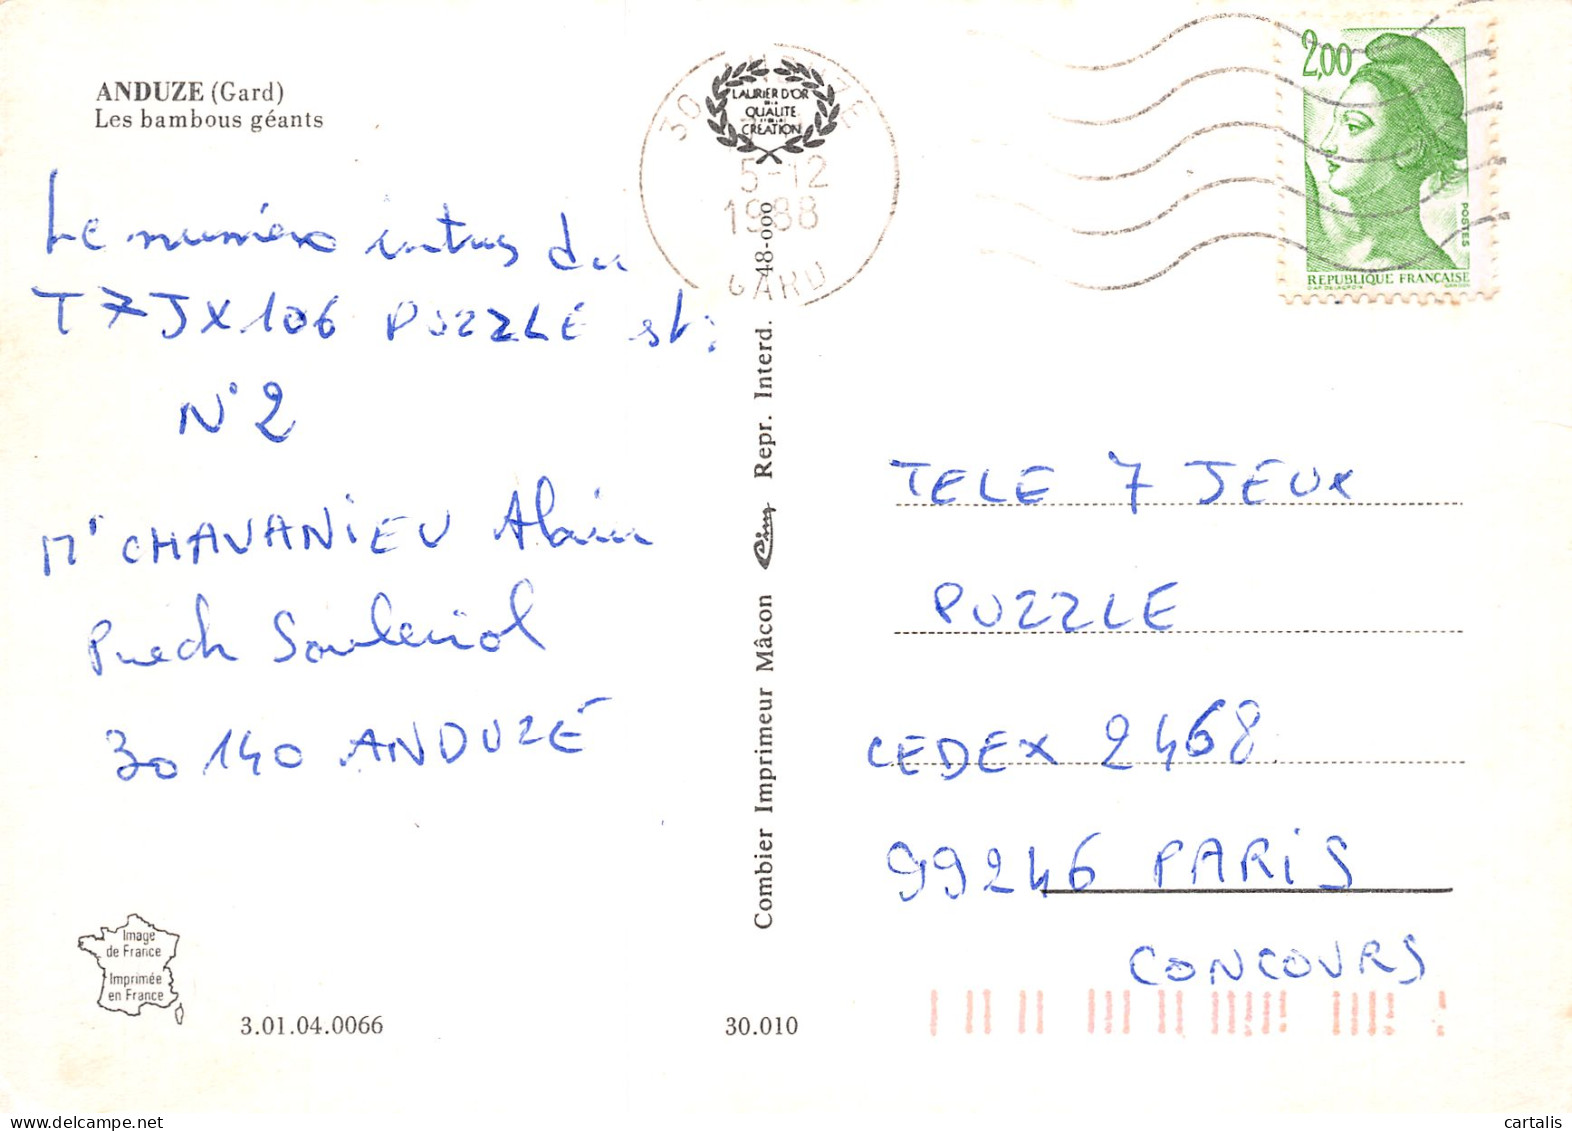 ANDUZE (Gard)
Les bambous géants
Le numéro intrus du
T7JX106 PUZZLE est:
N° 2
Mr CHAVANIEU Alain
Puech Souleirol
30 140 ANDUZE
Image
de France
Imprimée
en France
3.01.04.0066
30.010
Combier Imprimeur Mâcon Cim Repr. Interd. 48-000
LAURIER D'OR
DE LA
QUALITÉ
CRÉATION
30 ANDUZE
5-12
1988
GARD
2,00
POSTES
REPUBLIQUE FRANÇAISE
TELE 7 JEUX
PUZZLE
CEDEX 2468
99246 PARIS
CONCOURS
cartalis
www.delcampe.net